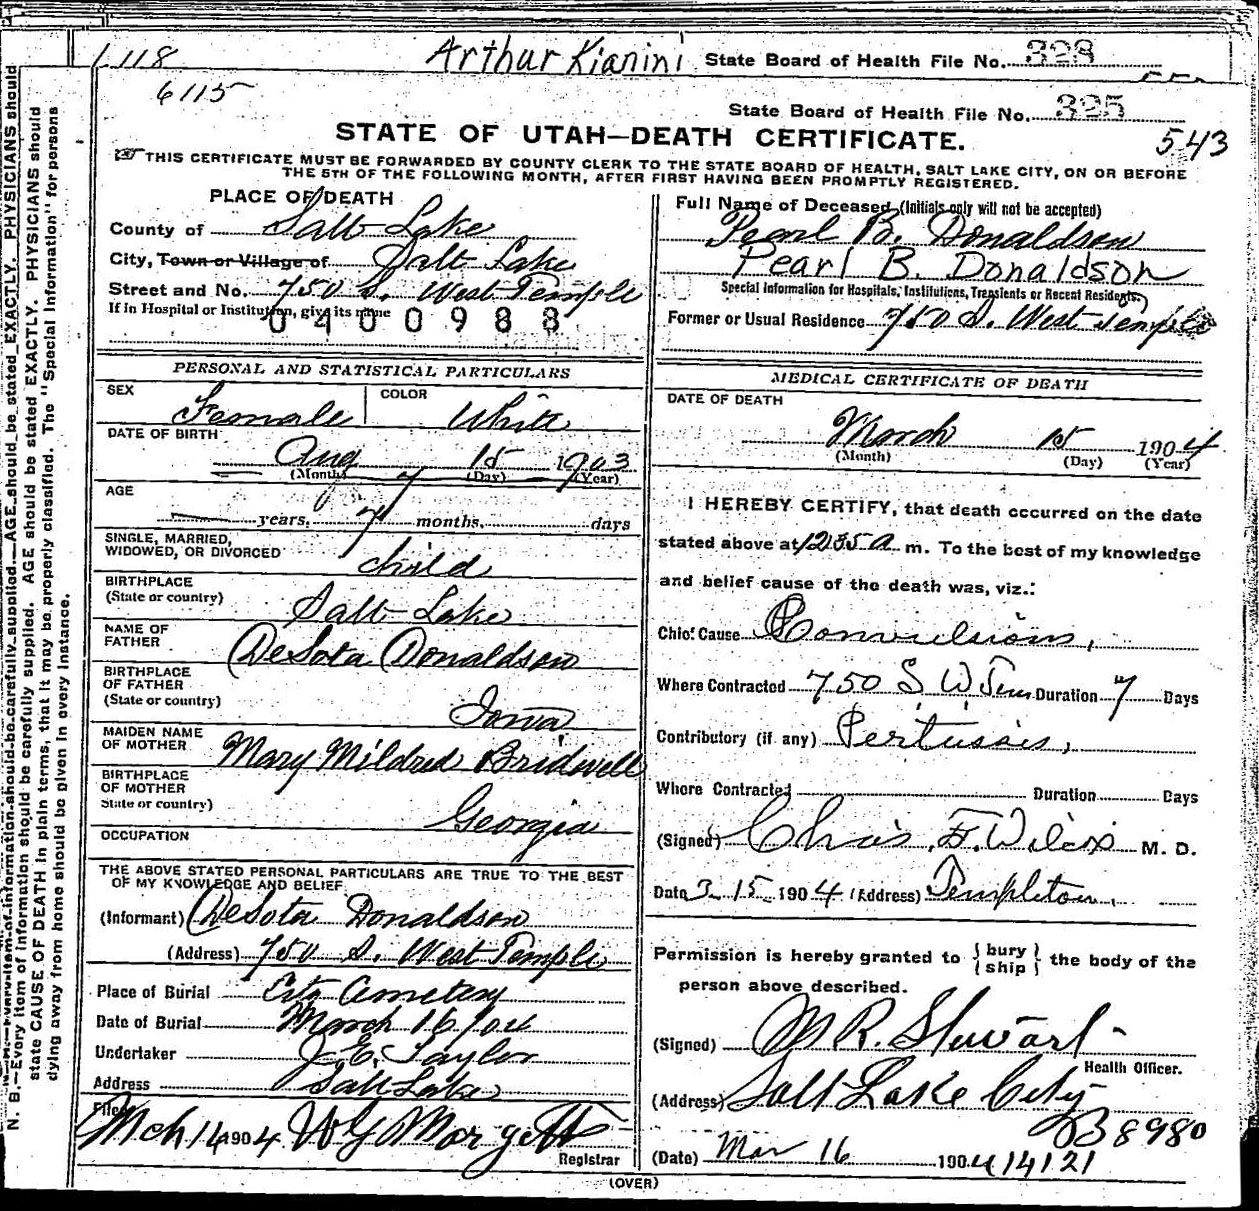 1118 Arthur Kianini State Board of Health File No. 323
6115
State Board of Health File No. 325
STATE OF UTAH—DEATH CERTIFICATE. 543
THIS CERTIFICATE MUST BE FORWARDED BY COUNTY CLERK TO THE STATE BOARD OF HEALTH, SALT LAKE CITY, ON OR BEFORE
THE 5TH OF THE FOLLOWING MONTH, AFTER FIRST HAVING BEEN PROMPTLY REGISTERED.
PLACE OF DEATH
County of Salt Lake
City, Town or Village of Salt Lake
Street and No. 750 S. West Temple
If in Hospital or Institution, give its name
0400988
PERSONAL AND STATISTICAL PARTICULARS
SEX Female COLOR White
DATE OF BIRTH
Aug 15 1903
(Month) (Day) (Year)
7
AGE
years, 7 months, days
SINGLE, MARRIED,
WIDOWED, OR DIVORCED child
BIRTHPLACE
(State or country) Salt Lake
NAME OF
FATHER DeSota Donaldson
BIRTHPLACE
OF FATHER
(State or country) Iowa
MAIDEN NAME
OF MOTHER Mary Mildred Bridwell
BIRTHPLACE
OF MOTHER
State or country) Georgia
OCCUPATION
THE ABOVE STATED PERSONAL PARTICULARS ARE TRUE TO THE BEST
OF MY KNOWLEDGE AND BELIEF
(Informant) DeSota Donaldson
(Address) 750 S. West Temple
Place of Burial City Cemetery
Date of Burial March 16/04
Undertaker J. E. Taylor
Address Salt Lake
Filed
Mch 16 1904 W G Margetts
Registrar
Full Name of Deceased (Initials only will not be accepted)
Pearl B. Donaldson
Pearl B. Donaldson
Special Information for Hospitals, Institutions, Transients or Recent Residents.
Former or Usual Residence 750 S. West Temple
MEDICAL CERTIFICATE OF DEATH
DATE OF DEATH
March 15 1904
(Month) (Day) (Year)
I HEREBY CERTIFY, that death occurred on the date
stated above at 1235 a m. To the best of my knowledge
and belief cause of the death was, viz.:
Chief Cause Convulsions,
Where Contracted 750 S W Tem Duration 7 Days
Contributory (if any) Pertussis,
Where Contracted Duration Days
(Signed) Chas. F. Wilcox M. D.
Date 3 15 1904 (Address) Templeton.
Permission is hereby granted to { bury
ship } the body of the
person above described.
(Signed) M R. Stewart
Health Officer.
(Address) Salt Lake City
B 8980
(Date) Mar 16 1904 14121
(OVER)
N. B.—Every item of information should be carefully supplied. AGE should be stated EXACTLY. PHYSICIANS should
state CAUSE OF DEATH in plain terms, that it may be properly classified. The "Special Information" for persons
dying away from home should be given in every instance.